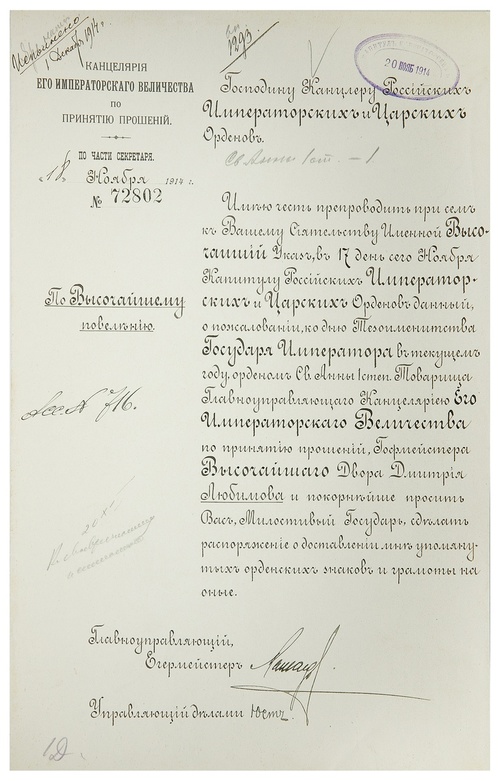 Исполнено
1 Декабр. 1914 г.
1293
КАНЦЕЛЯРІЯ
ЕГО ИМПЕРАТОРСКАГО ВЕЛИЧЕСТВА
ПО
ПРИНЯТІЮ ПРОШЕНІЙ.
ПО ЧАСТИ СЕКРЕТАРЯ.
„18„ Ноября 1914 г.
№ 72802
По Высочайшему
повелѣнію.
20 НОЯБ 1914
Господину Канцлеру Россійскихъ
Императорскихъ и Царскихъ
Орденовъ.
Св. Анны 1 ст. – 1
Имѣю честь препроводить при семъ
къ Вашему Сіятельству Именной Высо-
чайшій Указъ, въ 17 день сего Ноября
Капитулу Россійскихъ Император-
скихъ и Царскихъ Орденовъ данный,
о пожалованіи, ко дню Тезоименитства
Государя Императора въ текущемъ
году, орденомъ Св. Анны 1 степ. Товарища
Главноуправляющаго Канцеляріею Его
Императорскаго Величества
по принятію прошеній, Гофмейстера
Высочайшаго Двора Дмитрія
Любимова и покорнѣйше просить
Васъ, Милостивый Государь, сдѣлать
распоряженіе о доставленіи мнѣ упомяну-
тыхъ орденскихъ знаковъ и грамоты на
оные.
№ 716.
Главноуправляющій,
Егермейстеръ
Управляющій дѣлами